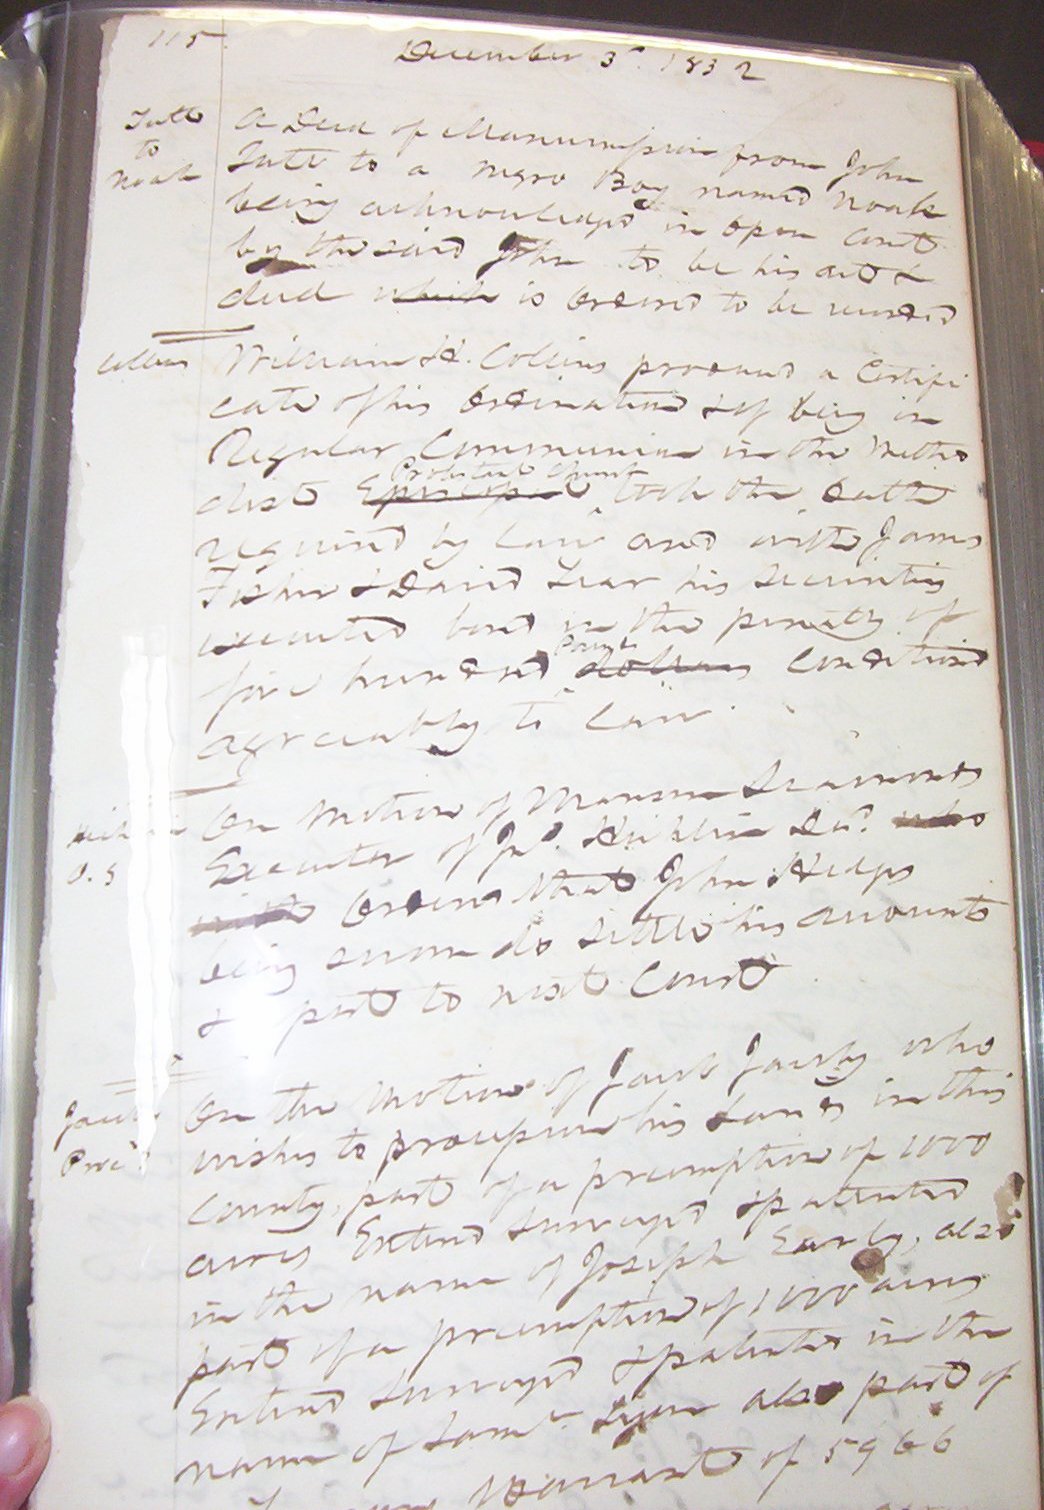 115
December 3d. 1832
Tutt
to
Noah
A Deed of Manumission from John
Tutt to a negro Boy named Noah
being acknowledged in open Court
by the said John to be his act &
deed which is Ordered to be recorded
Collins
William H. Collins produced a Certifi
cate of his Ordination & of being in
Regular Communion in the Metho
dist Episcopal Protestant Church took the Oaths
required by law and with James
Fisher & David Lear his securities
executed bond in the penalty of
five hundred dollars Pounds Conditioned
agreeably to law.
On Motion of Manson Seamonds
Executor of Jno. Hicklin Decd. who
with Ordered that John Hedges
being sworn do settle his accounts
& report to next Court
Jacoby
Proc'd
On the Motion of Jacob Jacoby who
wishes to procession his Lands in this
County, part of a preemption of 1000
acres Entered Surveyed & patented
in the name of Joseph Early, also
part of a preemption of 1000 acres
Entered Surveyed & patented in the
name of Saml. Lyon also part of
Warrant of 5966